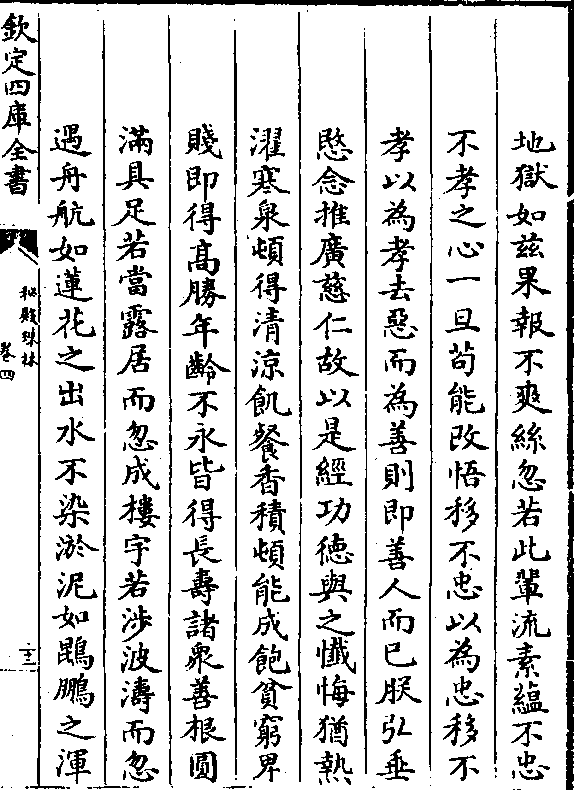 地獄如兹果報不爽絲忽若此軰流素蘊不忠
不孝之心一旦茍能改悟移不忠以為忠移不
孝以為孝去惡而為善則即善人而已朕弘垂
愍念推廣慈仁故以是經功徳與之懺悔猶熱
濯寒泉頓得清凉飢餐香積頓能成飽貧窮畀
賤即得髙勝年齡不永皆得長壽諸衆善根圓
滿具足若當露居而忽成樓宇若涉波濤而忽
遇舟航如蓮花之出水不染淤泥如鵾鵬之渾
欽定四庫全書
秘殿珠林
卷四
十三